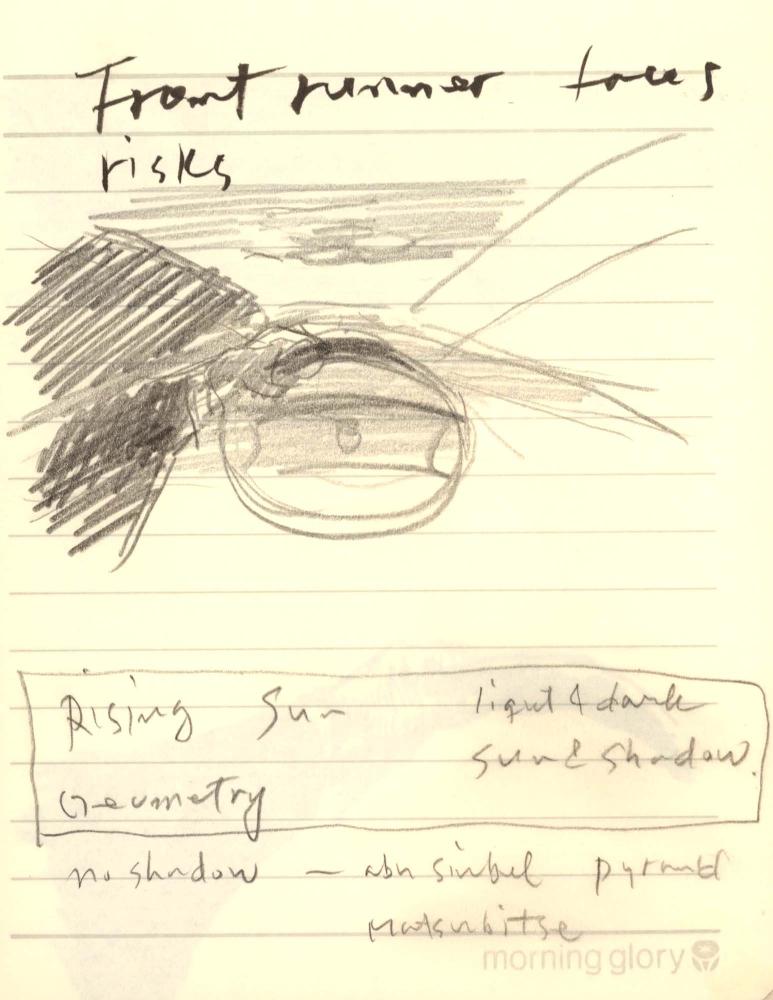 Front runner faces
risks
Rising Sun
light & dark
sun & shadow.
Geometry
no shadow — abu simbel pyramid
morning glory